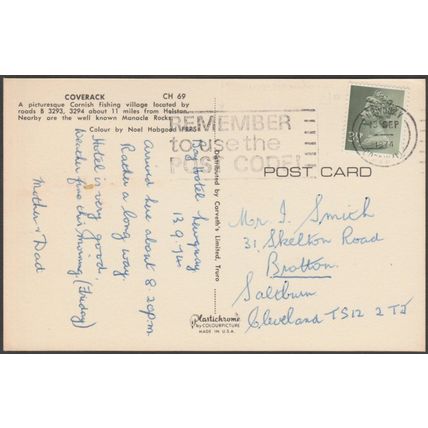 COVERACK CH 69
A picturesque Cornish fishing village located by
roads B 3293, 3294 about 11 miles from Helston.
Nearby are the well known Manacle Rocks.
Colour by Noel Habgood FRPS
REMEMBER
to use the
POST CODE!
13 SEP
1974
POST CARD
Distributed by Corveth's Limited, Truro
Plastichrome
by COLOURPICTURE
MADE IN U.S.A.
Bay Hotel Newquay
13.9.74
Arrived here about 8.20pm
Rather a long way.
Hotel is very good.
Weather fine this morning (Friday)
Mother & Dad
Mr. I. Smith
31, Skelton Road
Brotton.
Saltburn
Cleveland TS12 2TJ